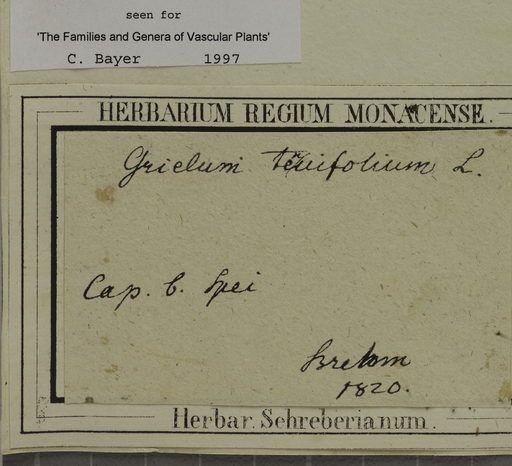 seen for
'The Families and Genera of Vascular Plants'
C. Bayer 1997
HERBARIUM REGIUM MONACENSE.
Grielum tenuifolium L.
Cap. b. Spei
Brehm
1820.
Herbar. Schreberianum.